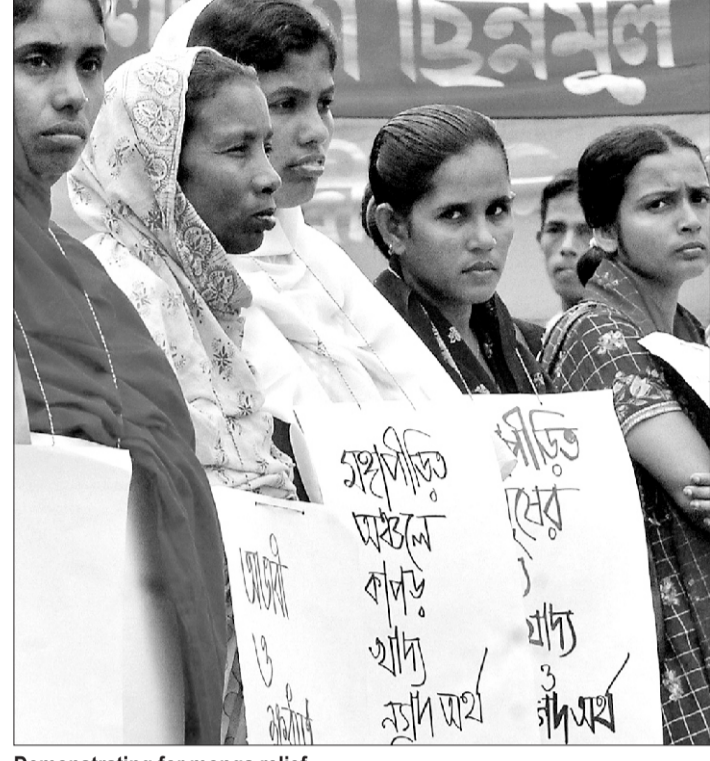 ছিন্নমূল
মঙ্গাপীড়িত
অঞ্চলে
কাপড়
খাদ্য
নগদ অর্থ
পীড়িত
ষের
খাদ্য
ও
নগদ অর্থ
অভাবী
ও
Demonstrating for monga relief